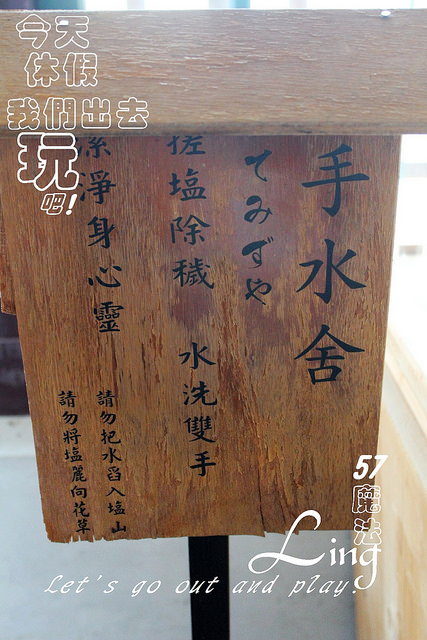 今天
休假
我們出去
玩
吧!
手水舍
てみずや
搓塩除穢 水洗雙手
潔淨身心靈
請勿把水舀入塩山
請勿將塩麗向花草
57
魔法
Ling
Let's go out and play.